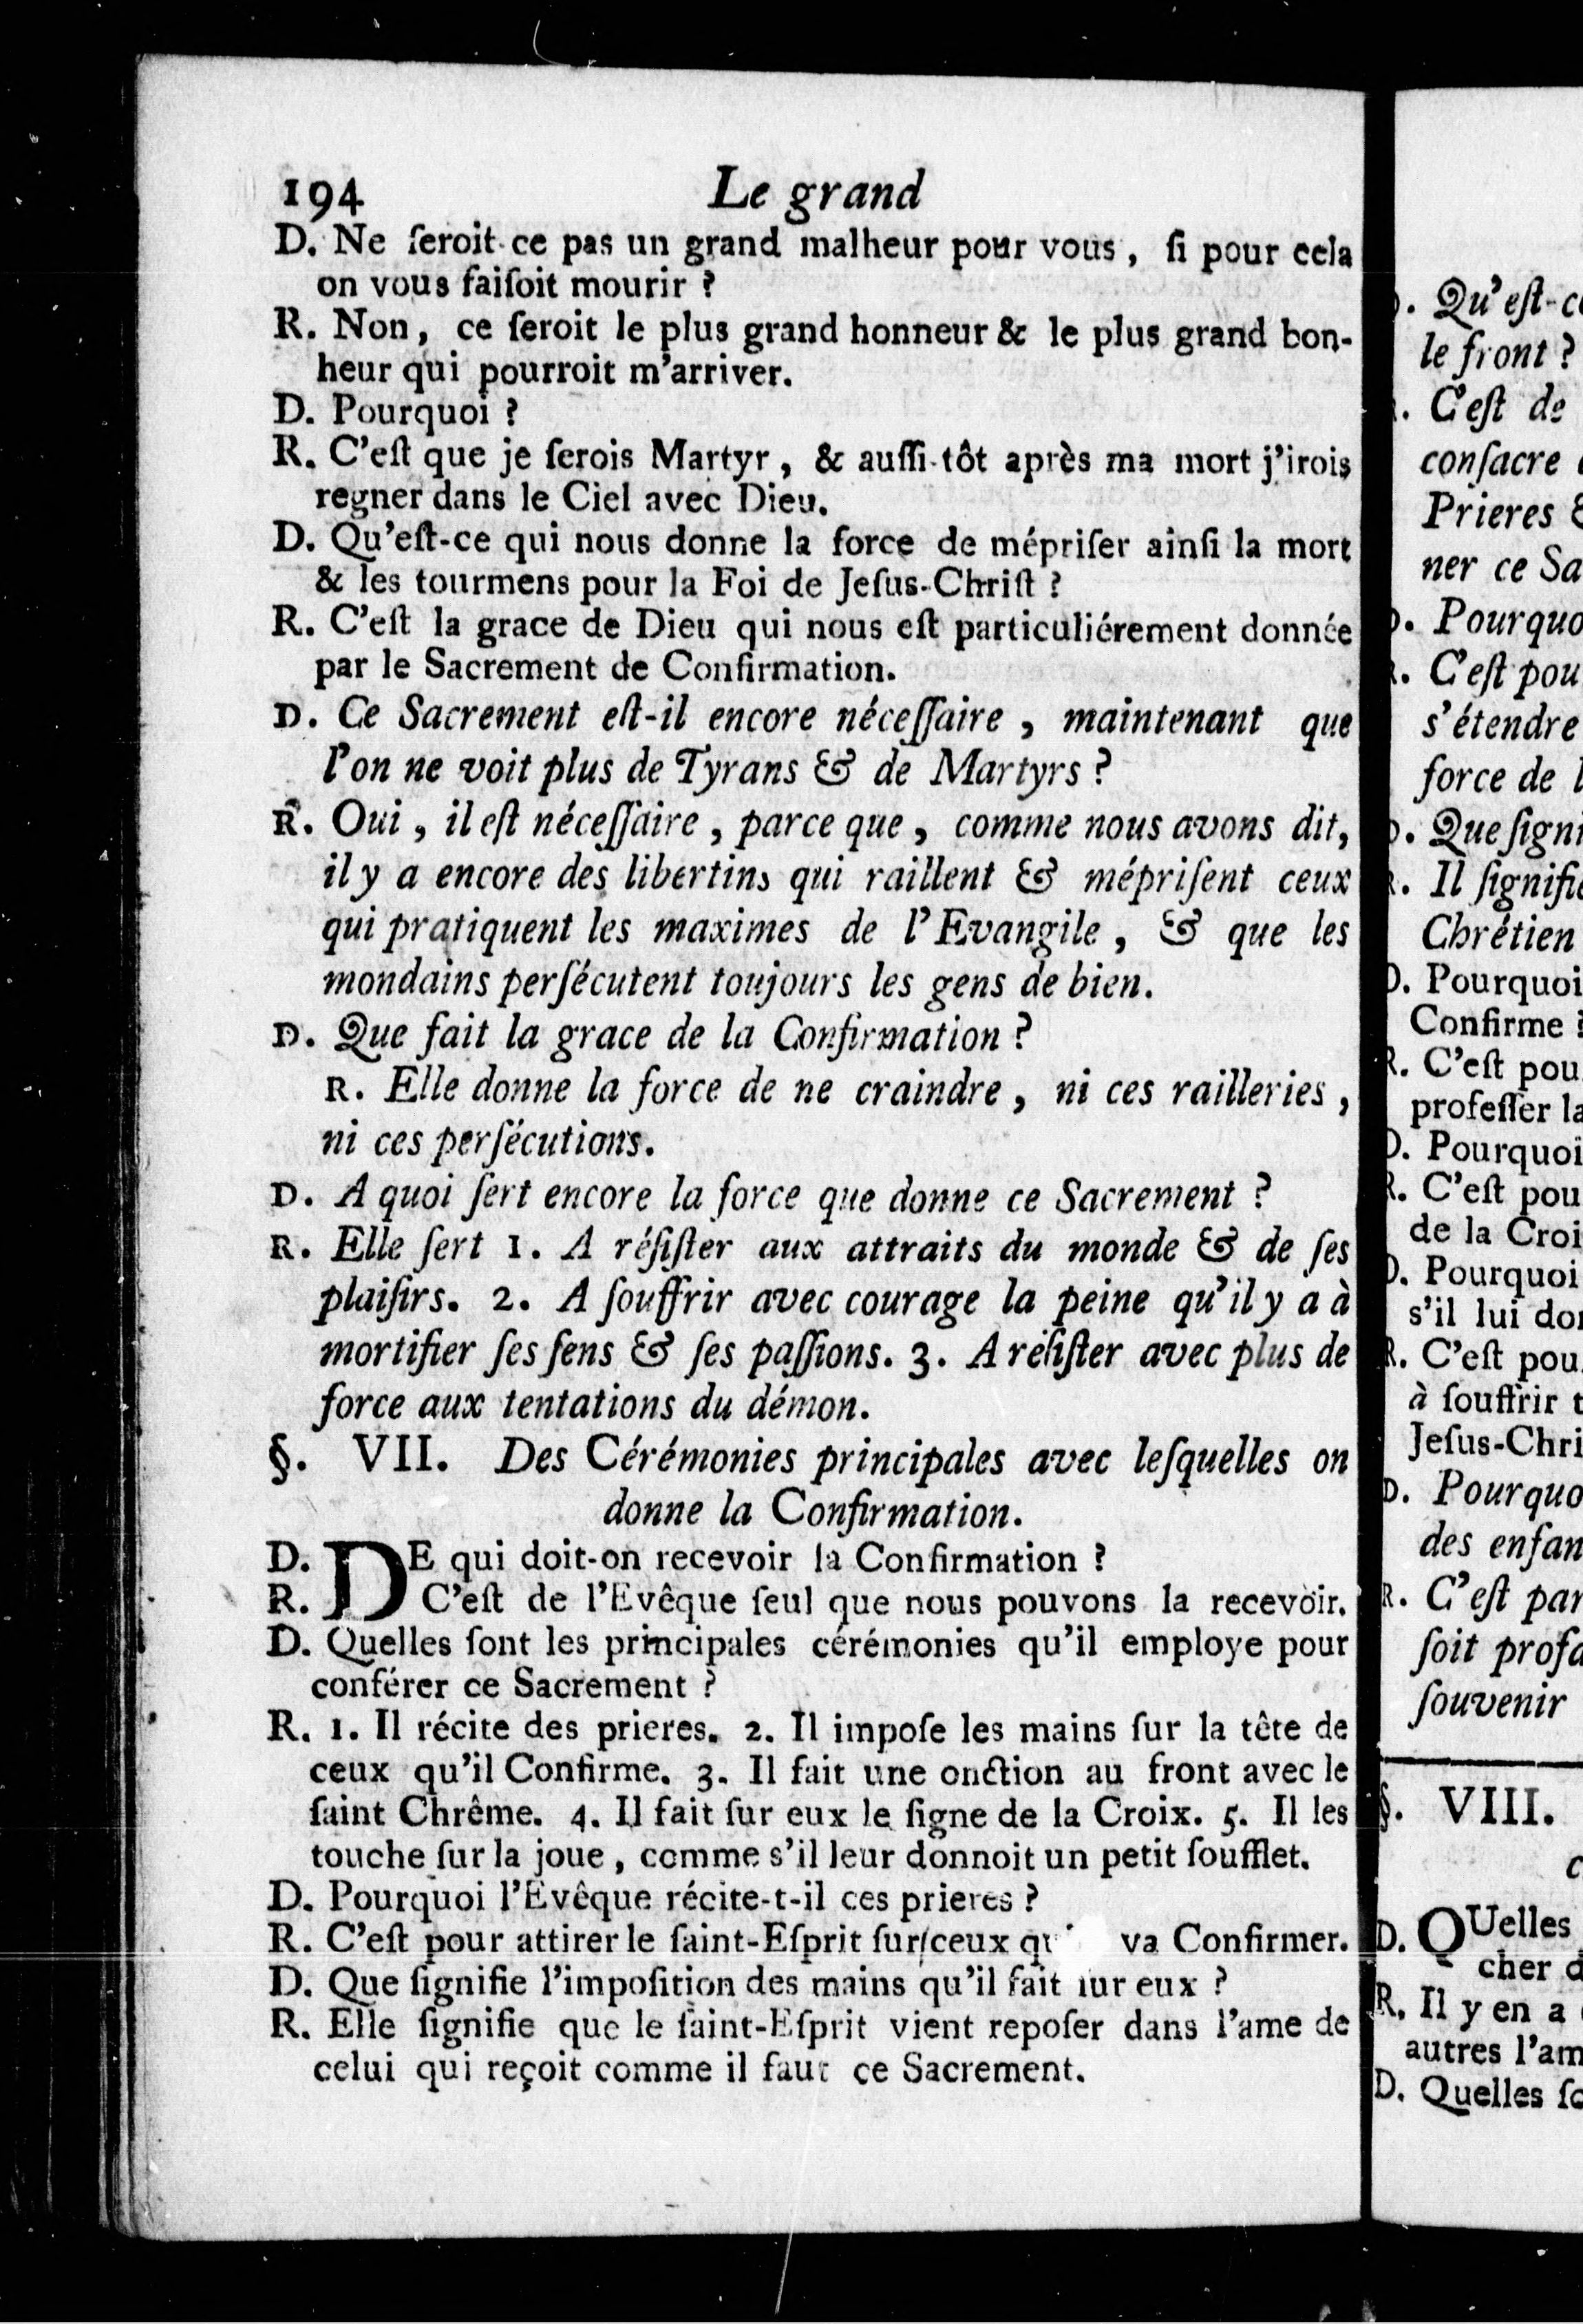 194 Le grand
D. Ne ſeroit-ce pas un grand malheur pour vous, ſi pour cela
on vous faiſoit mourir ?
R. Non, ce ſeroit le plus grand honneur & le plus grand bon-
heur qui pourroit m'arriver.
D. Pourquoi ?
R. C'eſt que je ſerois Martyr, & auſſi-tôt après ma mort j'irois
regner dans le Ciel avec Dieu.
D. Qu'eſt-ce qui nous donne la force de mépriſer ainſi la mort
& les tourmens pour la Foi de Jeſus-Chriſt ?
R. C'eſt la grace de Dieu qui nous eſt particuliérement donnée
par le Sacrement de Confirmation.
D. Ce Sacrement eſt-il encore néceſſaire, maintenant que
l'on ne voit plus de Tyrans & de Martyrs ?
R. Oui, il eſt néceſſaire, parce que, comme nous avons dit,
il y a encore des libertins qui raillent & mépriſent ceux
qui pratiquent les maximes de l'Evangile, & que les
mondains perſécutent toujours les gens de bien.
D. Que fait la grace de la Confirmation ?
R. Elle donne la force de ne craindre, ni ces railleries,
ni ces perſécutions.
D. A quoi ſert encore la force que donne ce Sacrement ?
R. Elle ſert 1. A réſiſter aux attraits du monde & de ſes
plaiſirs. 2. A ſouffrir avec courage la peine qu'il y a à
mortifier ſes ſens & ſes paſſions. 3. A réſiſter avec plus de
force aux tentations du démon.
§. VII. Des Cérémonies principales avec leſquelles on
donne la Confirmation.
D. DE qui doit-on recevoir la Confirmation ?
R. C'eſt de l'Evêque ſeul que nous pouvons la recevoir.
D. Quelles ſont les principales cérémonies qu'il employe pour
conférer ce Sacrement ?
R. 1. Il récite des prieres. 2. Il impoſe les mains ſur la tête de
ceux qu'il Confirme. 3. Il fait une onction au front avec le
ſaint Chrême. 4. Il fait ſur eux le ſigne de la Croix. 5. Il les
touche ſur la joue, comme s'il leur donnoit un petit ſoufflet.
D. Pourquoi l'Evêque récite-t-il ces prieres ?
R. C'eſt pour attirer le ſaint-Eſprit ſur ceux va Confirmer.
D. Que ſignifie l'impoſition des mains qu'il fait ſur eux ?
R. Elle ſignifie que le ſaint-Eſprit vient repoſer dans l'ame de
celui qui reçoit comme il faut ce Sacrement.
Qu'eſt-c
le front ?
C'eſt de
conſacre
Prieres &
ner ce Sa
Pourquo
C'eſt pou
s'étendre
force de l
Que ſigni
Il ſignifie
Chrétien
D. Pourquoi
Confirme ?
R. C'eſt pou
profeſſer la
D. Pourquoi
R. C'eſt pou
de la Croi
D. Pourquoi
s'il lui do
R. C'eſt pou
à ſouffrir t
Jeſus-Chri
D. Pourquo
des enfan
R. C'eſt par
ſoit profa
ſouvenir
§. VIII.
c
D. QUelles
cher d
R. Il y en a
autres l'am
D. Quelles ſo